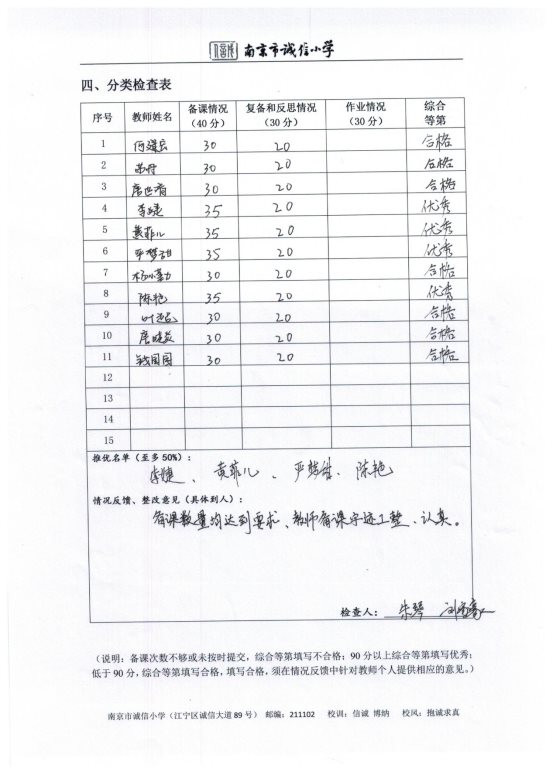 南京市诚信小学
四、分类检查表
序号 教师姓名 备课情况（40分） 复备和反思情况（30分） 作业情况（30分） 综合等第
1 30 20 合格
2 30 20 合格
3 30 20 合格
4 李婕 35 20 优秀
5 黄菲儿 35 20 优秀
6 严梦甜 35 20 优秀
7 30 20 合格
8 陈艳 35 20 优秀
9 30 20 合格
10 30 20 合格
11 钱国圆 30 20 合格
12
13
14
15
推优名单（至多50%）：
李婕、黄菲儿、严梦甜、陈艳
情况反馈、整改意见（具体到人）：
备课数量均达到要求、教师备课字迹工整、认真。
检查人：朱琴
（说明：备课次数不够或未按时提交，综合等第填写不合格；90分以上综合等第填写优秀；
低于90分，综合等第填写合格，填写合格，须在情况反馈中针对教师个人提供相应的意见。）
南京市诚信小学（江宁区诚信大道89号） 邮编：211102 校训：信诚 博纳 校风：抱诚求真